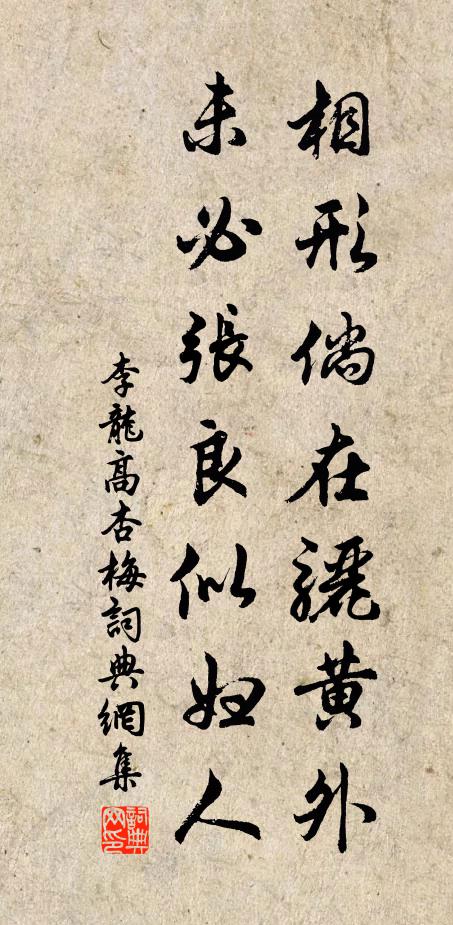 相形倘在驪黃外
未必張良似婦人
李龍高杏梅詞典網集
詞典網印